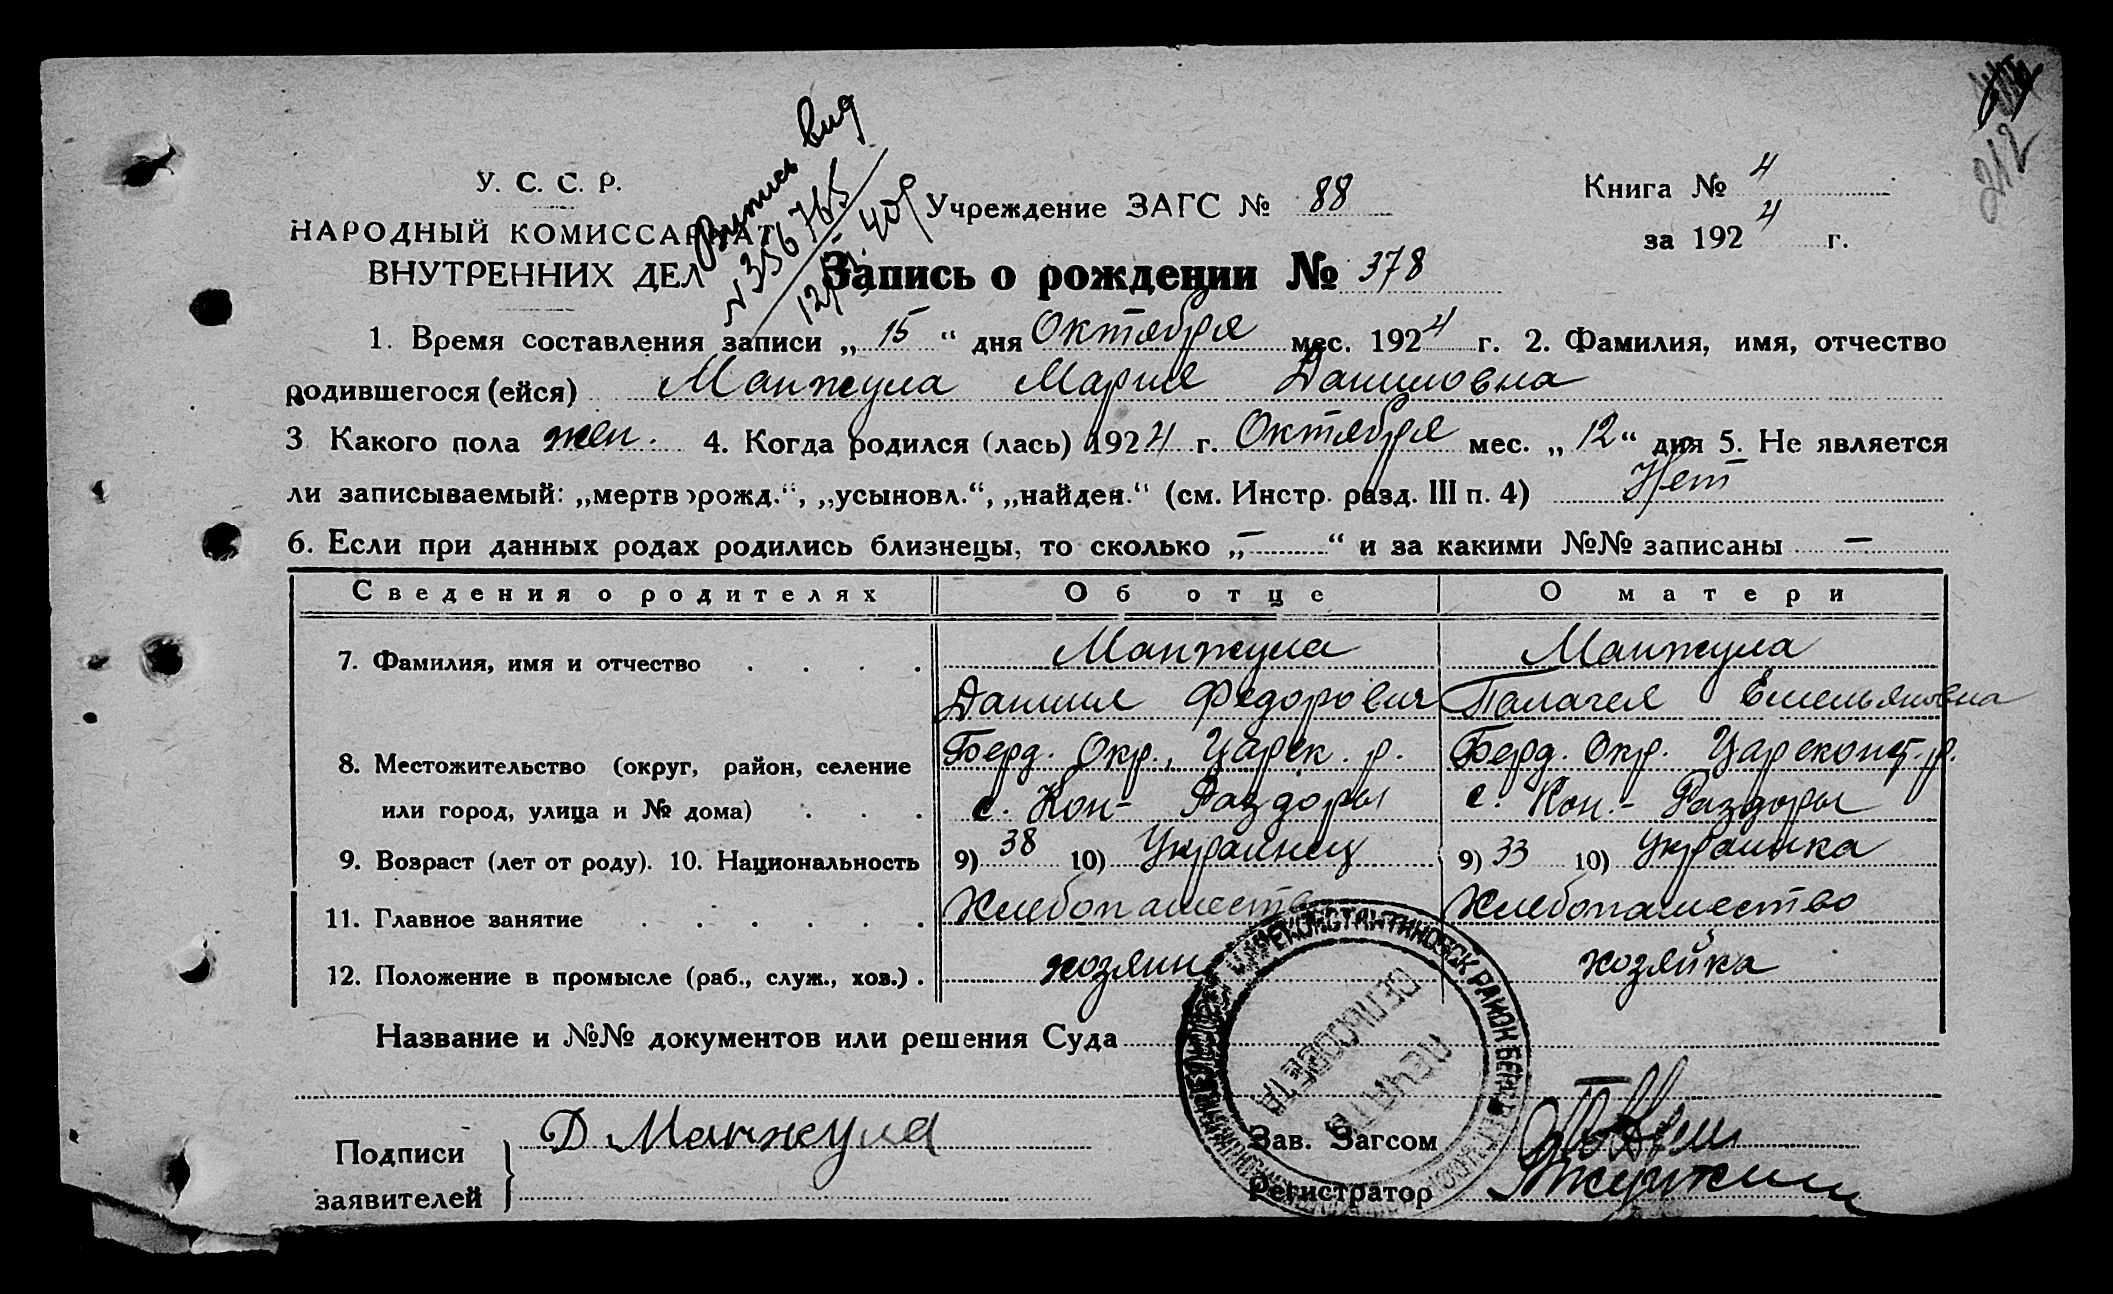 212
У. С. С. Р.
НАРОДНЫЙ КОМИССАРИАТ
ВНУТРЕННИХ ДЕЛ
Выпись выд
№ 356765
Учреждение ЗАГС № 88
Книга № 4
за 1924 г.
Запись о рождении № 378
1. Время составления записи „15“ дня Октября мес. 1924 г. 2. Фамилия, имя, отчество
родившегося (ейся) Манжула Мария Даниловна
3 Какого пола жен. 4. Когда родился (лась) 1924 г. Октября мес. „12“ дня 5. Не является
ли записываемый: „мертворожд.“, „усыновл.“, „найден.“ (см. Инстр. разд. III п. 4) Нет
6. Если при данных родах родились близнецы, то сколько „—“ и за какими №№ записаны —
Сведения о родителях Об отце О матери
7. Фамилия, имя и отчество . . . . Манжула Манжула
Даниил Федорович Палагея Емельяновна
8. Местожительство (округ, район, селение Берд. Окр., Царек. р. Берд. Окр. Цареконст. р.
или город, улица и № дома) . . . с. Кон- Раздоры с. Кон.- Раздоры
9. Возраст (лет от роду). 10. Национальность 9) 38 10) Украинец 9) 33 10) Украинка
11. Главное занятие . . . . . . Хлебопашество Хлебопашество
12. Положение в промысле (раб., служ., хоз.) . хозяин хозяйка
Название и №№ документов или решения Суда
ЦАРЕКОНСТАНТИНОВСК РАЙОН БЕРД
ПЕЧАТЬ
СЕЛЬСОВЕТА
Подписи
заявителей
Д Манжула
Зав. Загсом
Регистратор